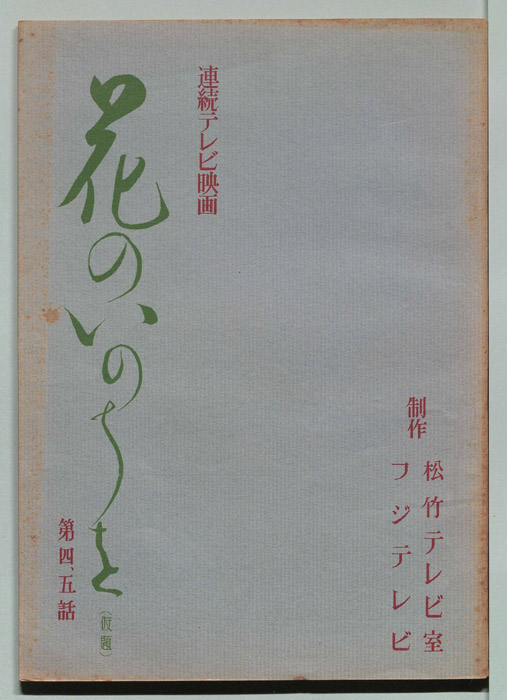 制作
松竹テレビ室
フジテレビ
連続テレビ映画
花のいのちを
(仮題)
第四、五話